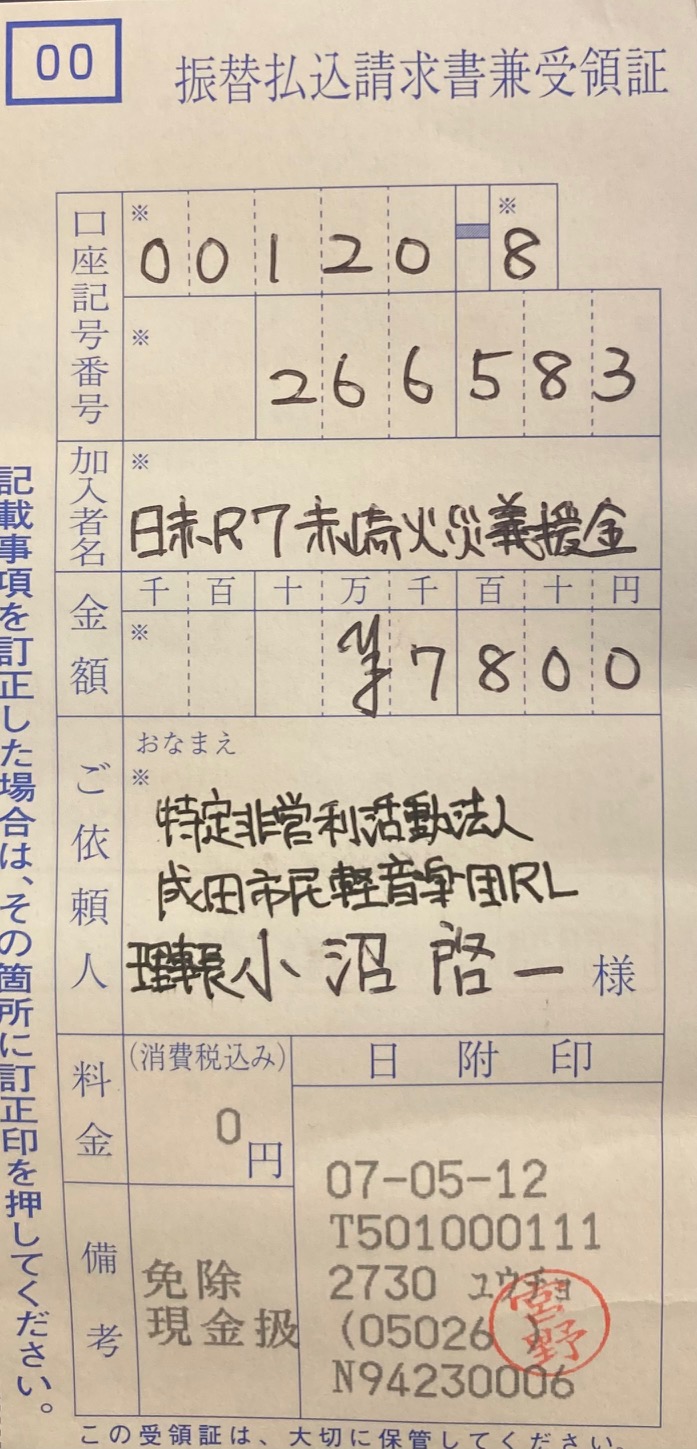 00
振替払込請求書兼受領証
口座記号番号
※
00120-8
※
266583
加入者名
※
日赤R7赤崎火災義援金
金額
千百十万千百十円
※
¥7800
ご依頼人
おなまえ
※
特定非営利活動法人
成田市民軽音楽団RL
理事長 小沼 啓一 様
料金
(消費税込み)
0円
日附印
07-05-12
T501000111
2730 ユウチョ
(05026 )
N94230006
宮野
備考
免除
現金扱
記載事項を訂正した場合は、その箇所に訂正印を押してください。
この受領証は、大切に保管してください。